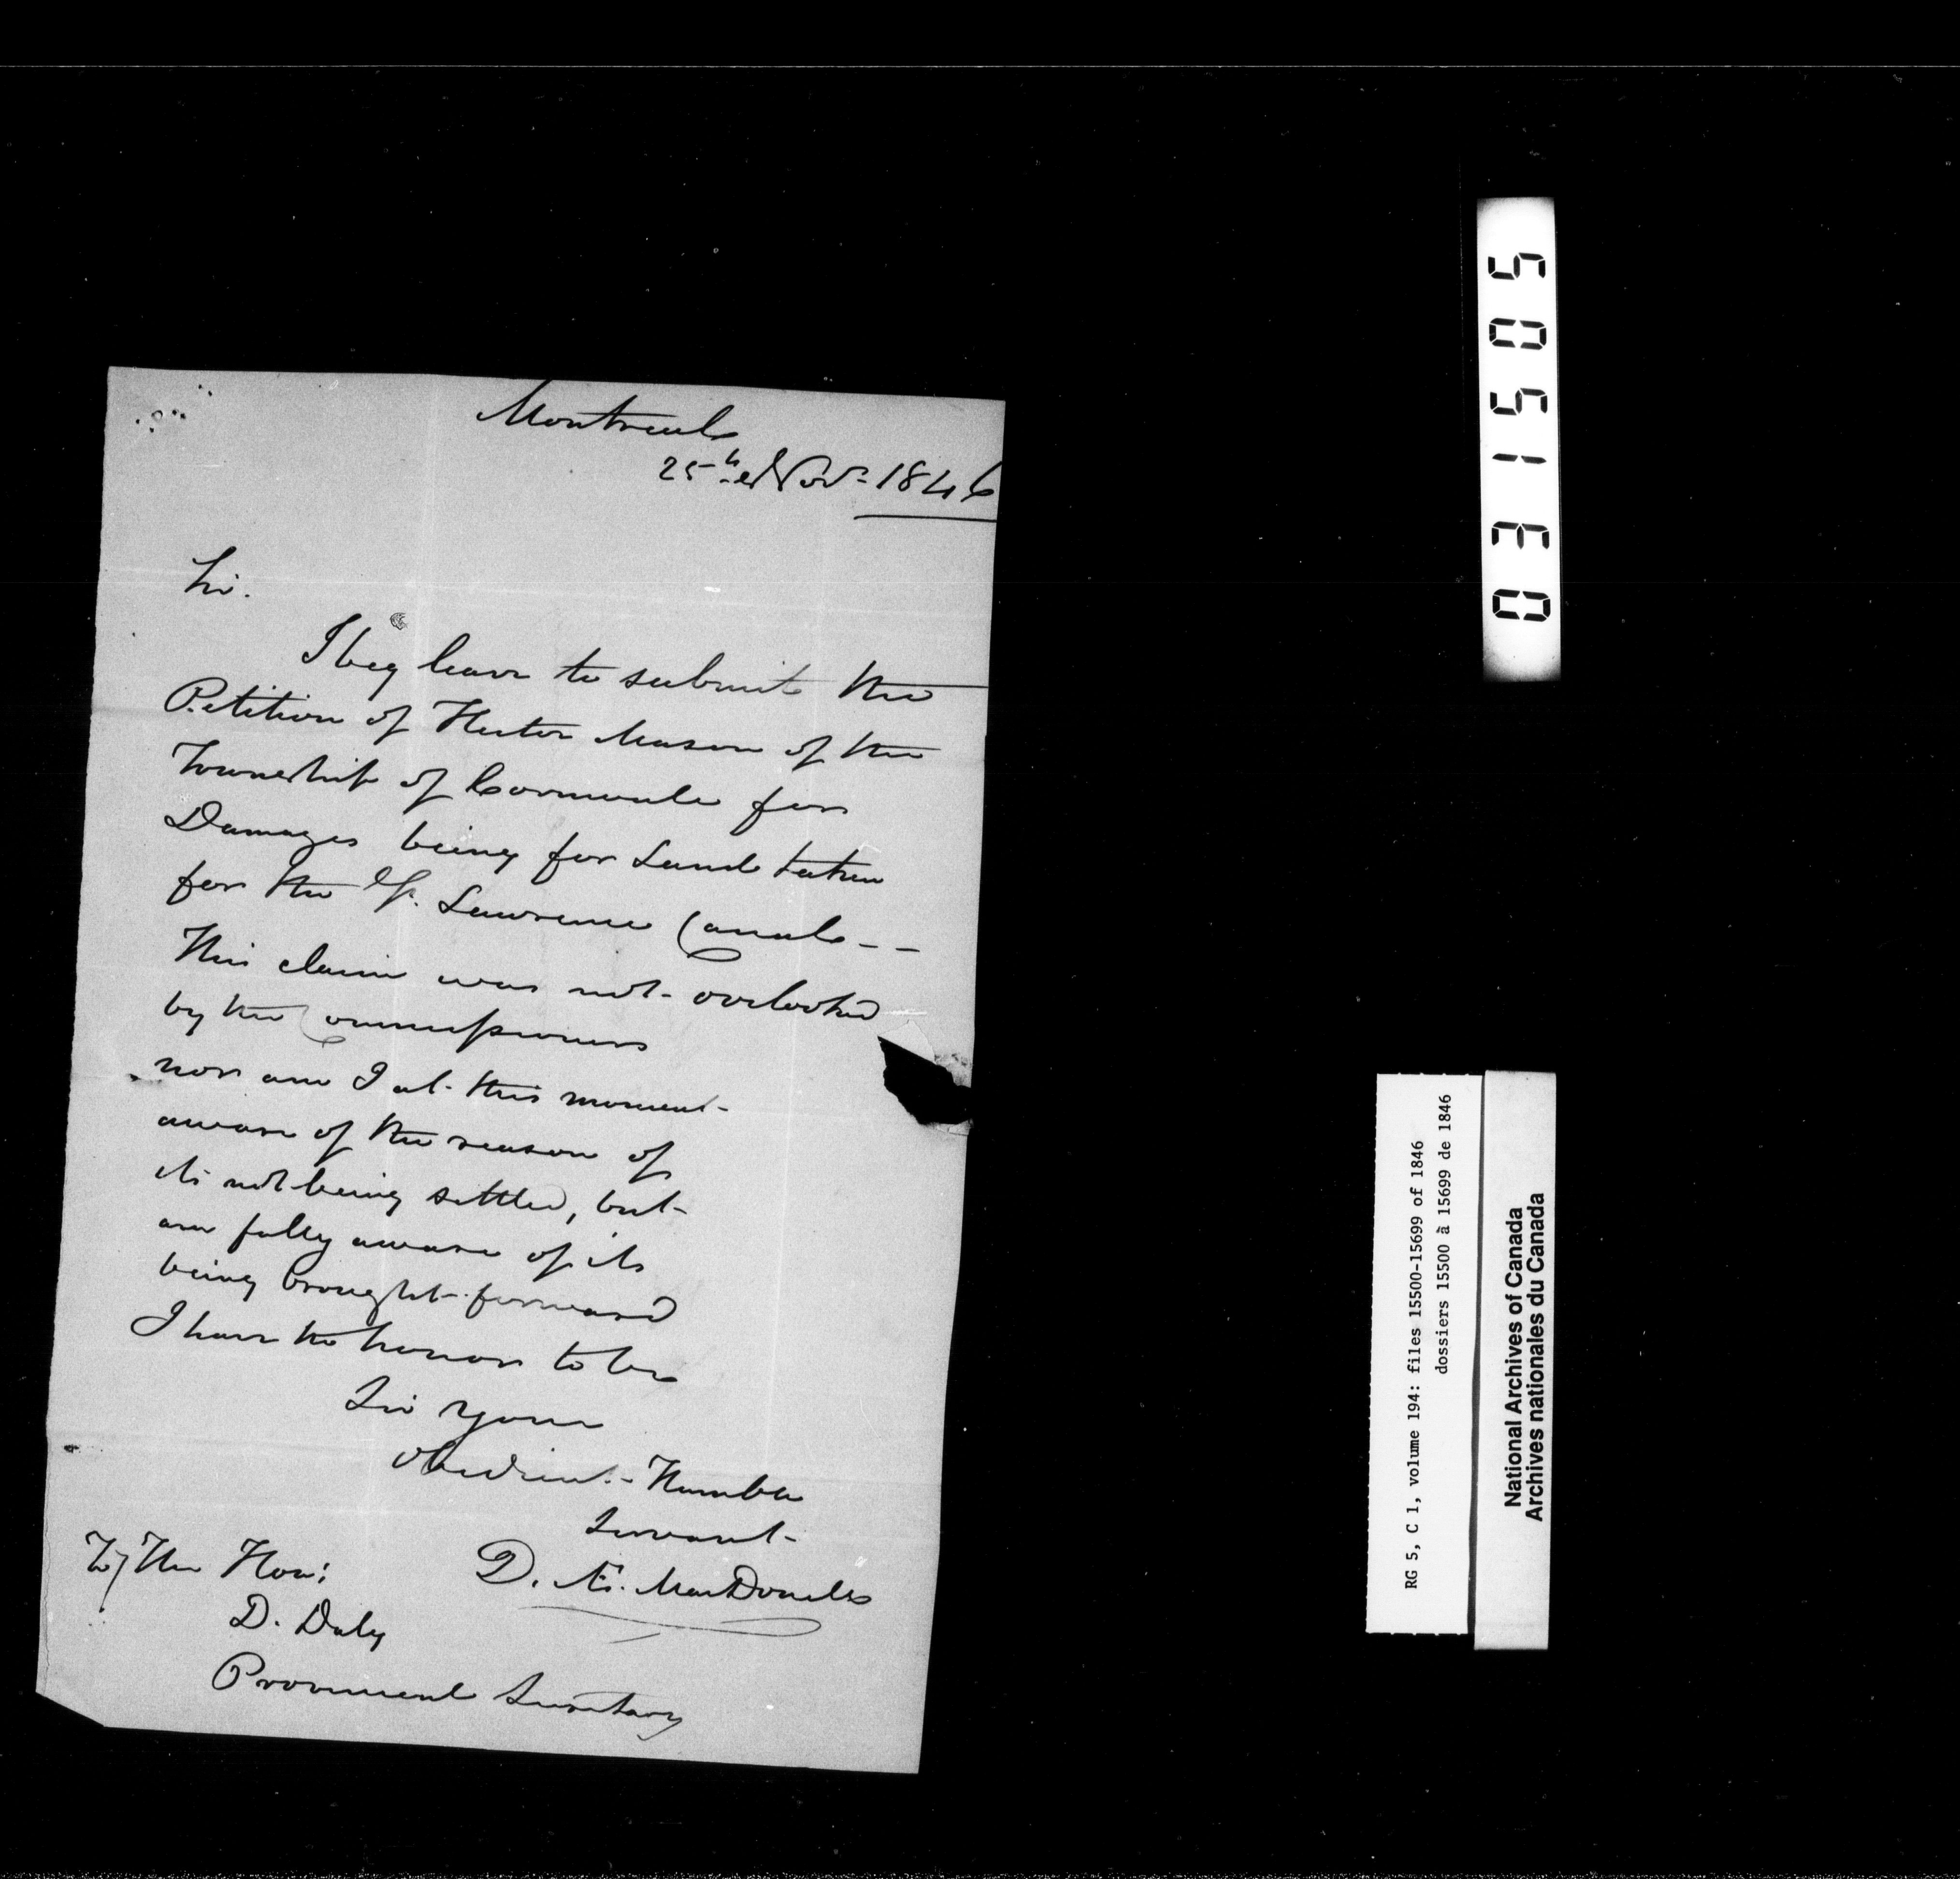 Montreal
25th Novr 1846
Sir.
I beg leave to submit the
Petition of Hector Mason of the
Township of Cornwale for
Damages being for Land taken
for the St. Lawrence Canal - -
This claim was not overlooked
by the Commissioners
nor am I at this moment
aware of the reason of
its not being settled, but
am fully aware of its
being brought forward
I have the honor to be
Sir your
Obedient Humble
Servant
D. Æ. MacDonell
To/ The Hon:
D. Daly
Provincial Secretary
031505
RG 5, C 1, volume 194: files 15500-15699 of 1846
dossiers 15500 à 15699 de 1846
National Archives of Canada
Archives nationales du Canada